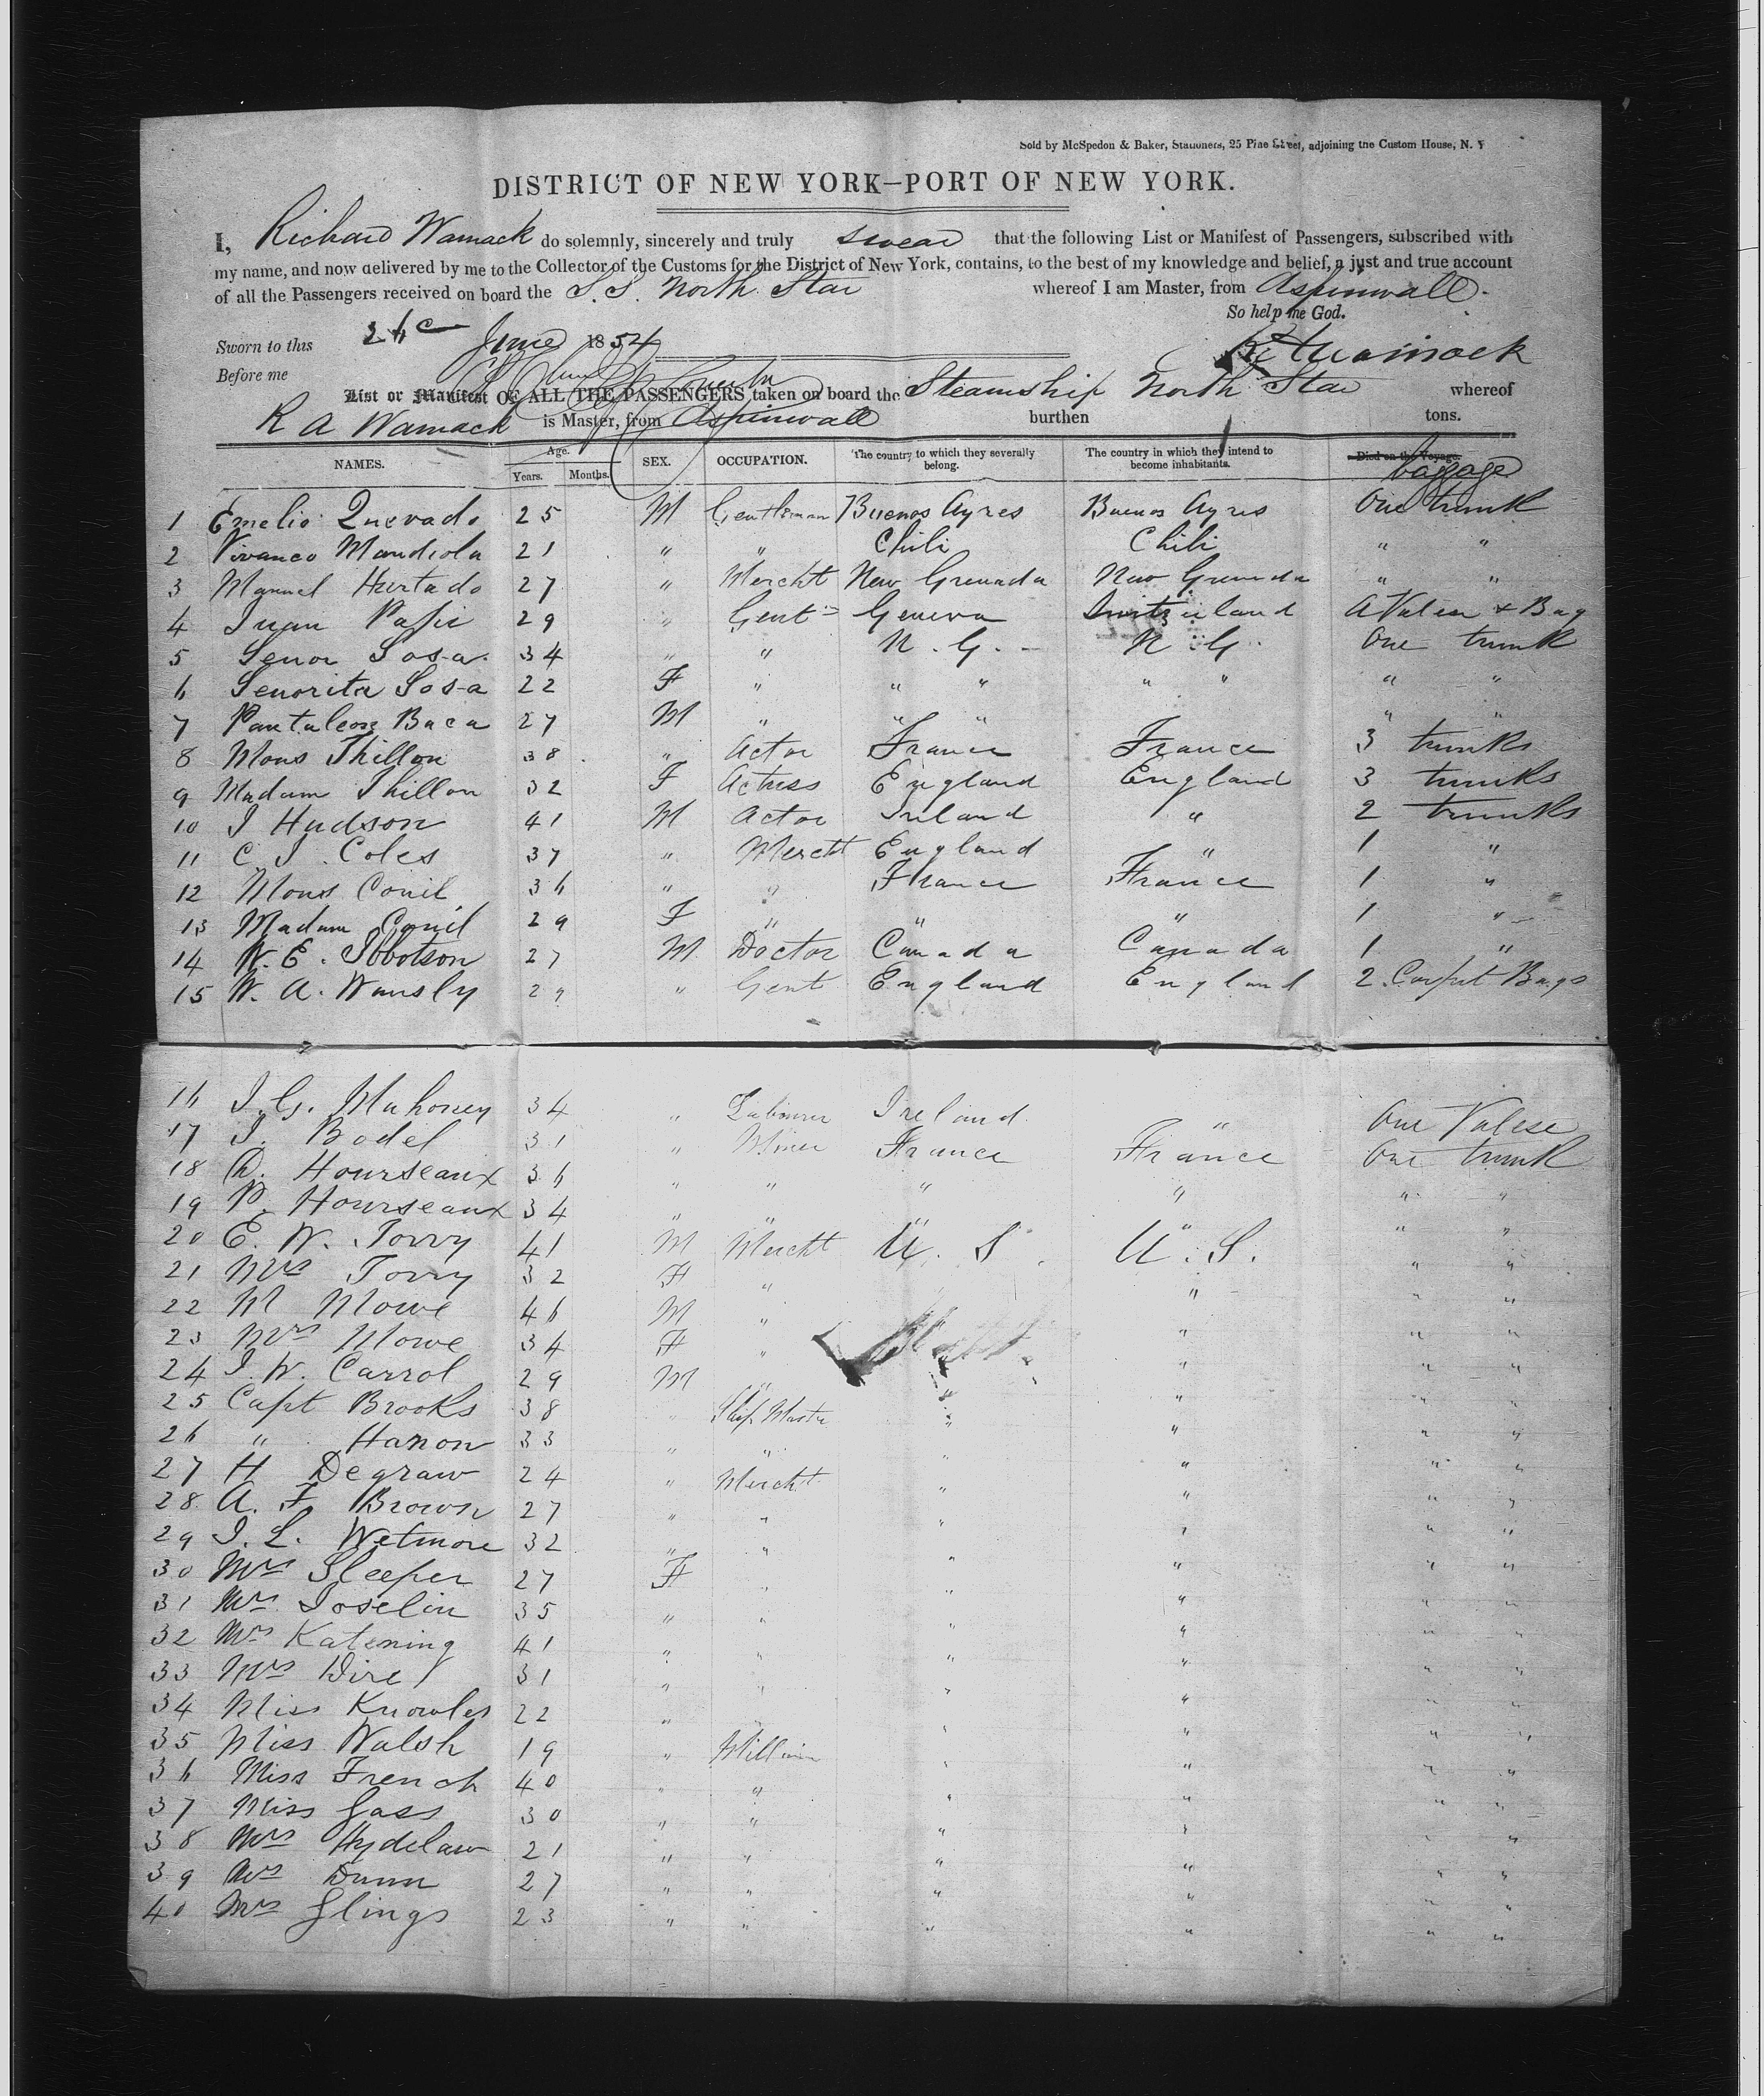 Sold by McSpedon & Baker, Stationers, 25 Pine Street, adjoining the Custom House, N. Y
DISTRICT OF NEW YORK—PORT OF NEW YORK.
I, Richard Wamack do solemnly, sincerely and truly swear that the following List or Manifest of Passengers, subscribed with
my name, and now delivered by me to the Collector of the Customs for the District of New York, contains, to the best of my knowledge and belief, a just and true account
of all the Passengers received on board the S.S. North Star whereof I am Master, from Aspinwall.
So help me God.
Sworn to this June 1854
Before me
List or Manifest OF ALL THE PASSENGERS taken on board the Steamship North Star whereof
R A Wamack is Master, from Aspinwall burthen tons.
NAMES. Age. Years. Months. SEX. OCCUPATION. The country to which they severally belong. The country in which they intend to become inhabitants. Died on the Voyage. baggage
1 Emelio Quevado 25 M Gentleman Buenos Ayres Buenos Ayres One trunk
2 Vivanco Mandiola 21 " " Chili Chili " "
3 Manuel Hurtado 27 " Mercht New Grenada New Grenada " "
4 Juan 29 " Gent Geneva Switzerland A Valise & Bag
5 Senor Sosa 34 " " N. G. N. G. One trunk
6 Senorita Sosa 22 F " " " " " " "
7 Pantaleon Baca 27 M " " " " "
8 Mons Thillon 38 " Actor France France 3 trunks
9 Madam Thillon 32 F Actress England England 3 trunks
10 J Hudson 41 M Actor Ireland " 2 trunks
11 C. J. Coles 37 " Mercht England " 1 "
12 Mons Conil 36 " " France France 1 "
13 Madam Conil 29 F " " " 1 "
14 W. E. Ibbotson 27 M Doctor Canada Canada 1 "
15 W. A. Wansly 29 " Gent England England 2 Carpet Bags
16 J. G. Mahoney 34 " Labourer Ireland " One Valese
17 J. Bodel 31 " Miner France France One trunk
18 Hourseaux 36 " " " " " "
19 P. Hourseaux 34 " " " " " "
20 E. W. Torry 41 M Mercht U. S. U. S. " "
21 Mrs Torry 32 F " " " "
22 M Mowe 46 M " " " "
23 Mrs Mowe 34 F " " " "
24 J. W. Carrol 29 M " " " " "
25 Capt Brooks 38 " Ship Master " " " "
26 " Hanon 33 " " " " " "
27 H Degraw 24 " Mercht " " " "
28 A. F. Brown 27 " " " " " "
29 J. L. Wetmore 32 " " " " " "
30 Mrs Sleeper 27 F " " " " "
31 Mrs Joselin 35 " " " " " "
32 Mrs Katening 41 " " " " " "
33 Mrs Dire 31 " " " " " "
34 Miss Knowles 22 " " " " " "
35 Miss Walsh 19 " " " " "
36 Miss French 40 " " " " " "
37 Miss Gass 30 " " " " " "
38 Mrs Hydelaw 21 " " " " " "
39 Mrs Dunn 27 " " " " " "
40 Mrs Glings 23 " " " " " "